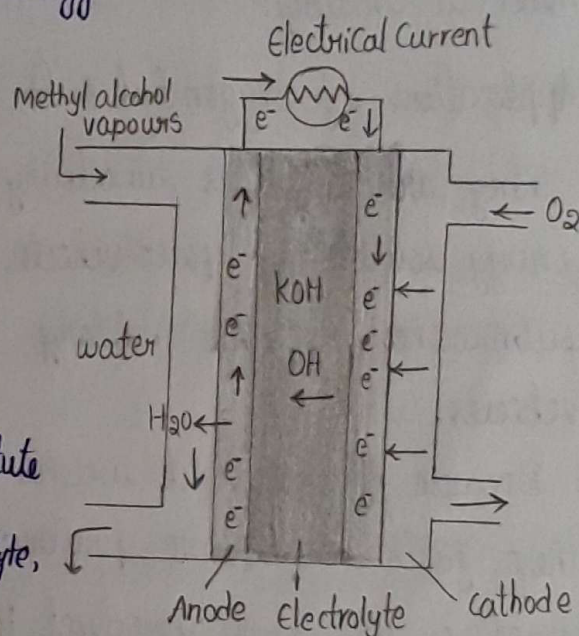 Electrical Current
Methyl alcohol
vapours
e⁻ e⁻
O2
e⁻
e⁻
KOH
e⁻
e⁻
e⁻
water
OH
e⁻
H2O
e⁻
e⁻
e⁻
e⁻
Anode Electrolyte Cathode